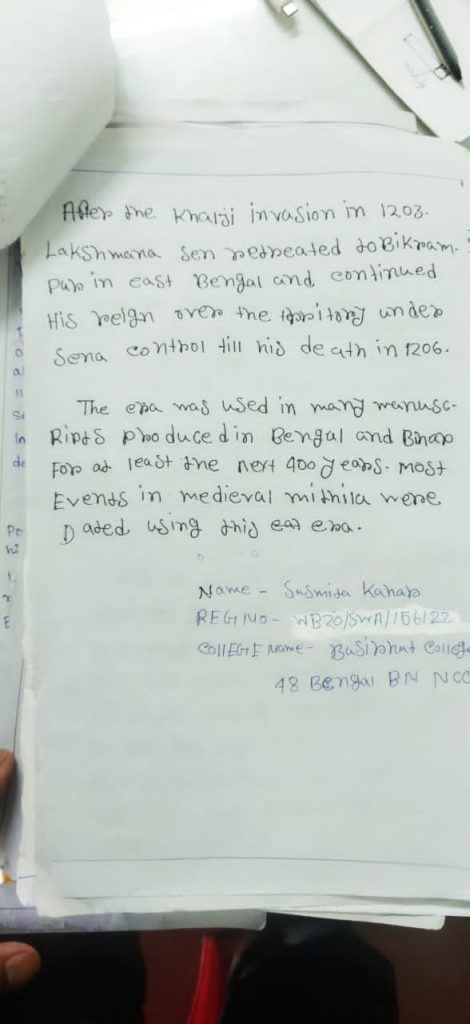 After the Khalji invasion in 1203.
Lakshmana Sen retreated to Bikram-
pur in east Bengal and continued
His reign over the territory under
Sena control till his death in 1206.
The era was used in many manusc-
Ripts produced in Bengal and Bihar
For at least the next 400 years. Most
Events in medieval mithila were
Dated using this era.
Name - Susmita Kahar
REG NO - WB20/SWA/156122
COllEGE Name - Basirhat College
48 Bengal BN NCC